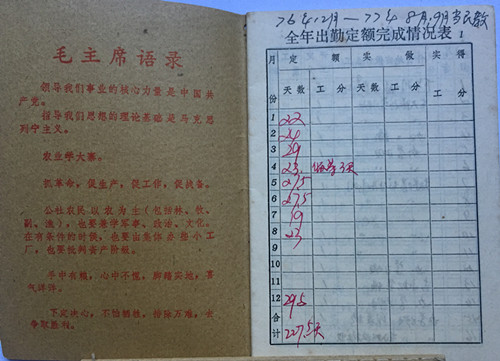 毛主席语录
领导我们事业的核心力量是中国共
产党。
指导我们思想的理论基础是马克思
列宁主义。
农业学大寨。
抓革命，促生产，促工作，促战备。
公社农民以农为主（包括林、牧、
副、渔），也要兼学军事、政治、文化。
在有条件的时候，也要由集体办些小工
厂，也要批判资产阶级。
手中有粮，心中不慌，脚踏实地，喜
气洋洋。
下定决心，不怕牺牲，排除万难，去
争取胜利。
76年12月—77年8月,9月
全年出勤定额完成情况表 1
月份 定额 实做 实得
天数 工分 天数 工分 工分
1 22
2 24
3 29
4 23
5 27.5
6 27.5
7 19
8 23
9
10
11
12 29.5
合计 227.5天